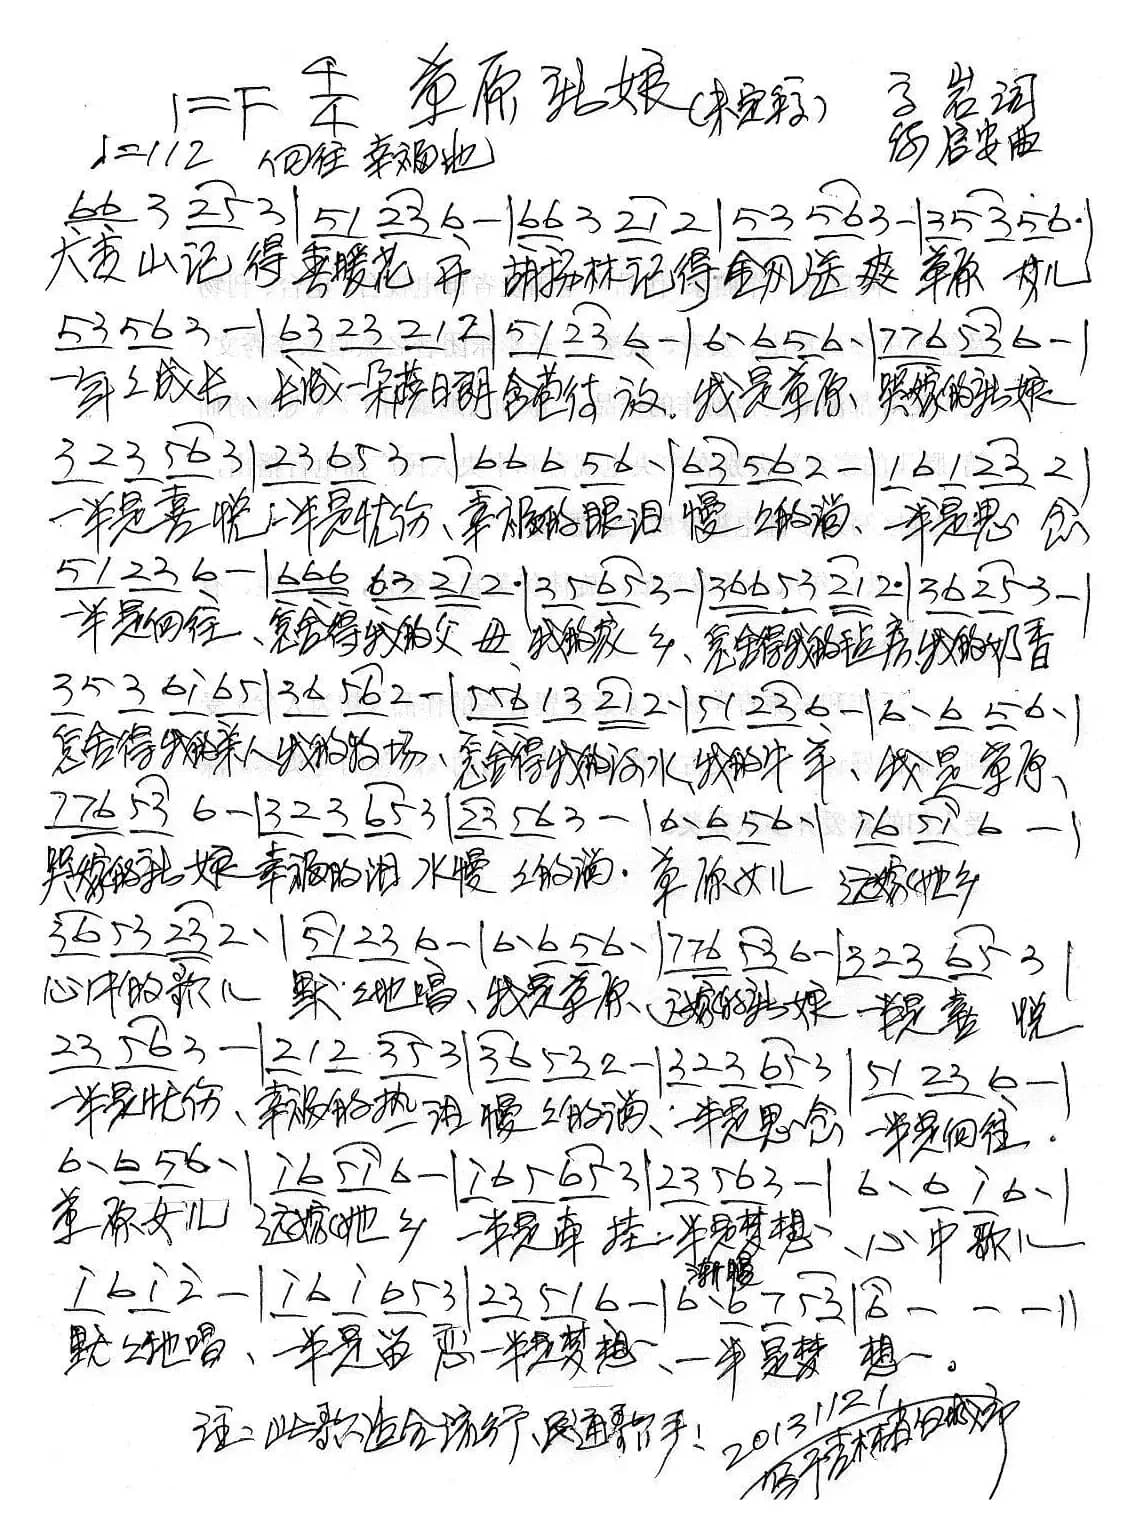 1=F 4/4 草原新娘(未定稿) 子岩词
♩=112 向往 幸福地 启安曲
66 3 253|51 236-|663 212|53 563-|35356·|
大青山记得春暖花开 胡杨林记得金风送爽 草原女儿
53563-|6323212|51236-|6·656·|776536-|
一年年成长 长成一朵萨日朗含苞待放 我是草原 哭嫁的新娘
323563|23653-|66656·|63562-|161232|
一半是喜悦 一半是忧伤、幸福的眼泪慢慢的淌、一半是思念
51236-|666 63 212·|35653-|36653212·|36253-|
一半是向往、怎舍得我的父母 我的家乡、怎舍得我的毡房我的奶香
3536i65|36562-|55613212·|51236-|6·656·|
怎舍得我的亲人我的牧场、怎舍得我的河水我的牛羊、我是草原、
77653 6-|323653|23563-|6·656·|i65i6-|
哭嫁的新娘 幸福的泪水慢慢的淌·草原女儿 远嫁他乡
3653232·|51236-|6·656·|776536-|323653|
心中的歌儿 默默地唱、我是草原、远嫁的新娘 一半是喜悦
23563-|212353|36532-|323653|51236-|
一半是忧伤、幸福的热泪慢慢的淌、一半是思念 一半是向往.
6·656·|i65i6-|i65653|23563-|6·6i6·|
草原女儿 远嫁他乡 一半是牵挂 一半是梦想、心中歌儿
渐慢
i6i2-|i6i653|23516-|6·6753|6---||
默默地唱、一半是留恋一半是梦想、一半是梦想。
注:此歌适合流行、民通歌手!
20131121